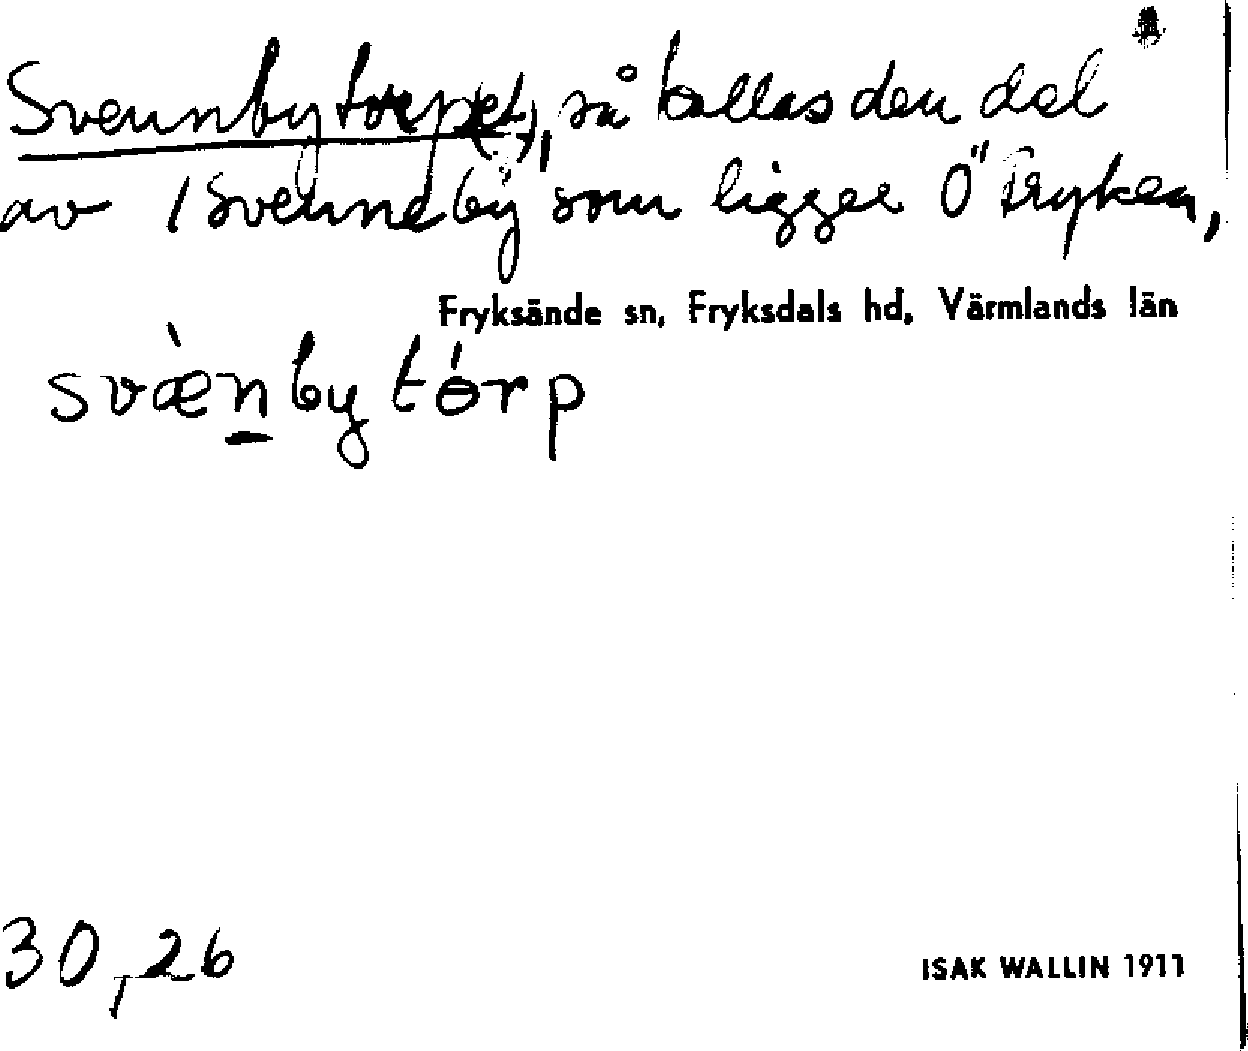 Svennbytorp(et), så kallas den del
av 1 Svenneby som ligger Ö" Fryken,
Fryksände sn, Fryksdals hd, Värmlands län
svæ̀n̲by tɵ́rp
30,26
ISAK WALLIN 1911